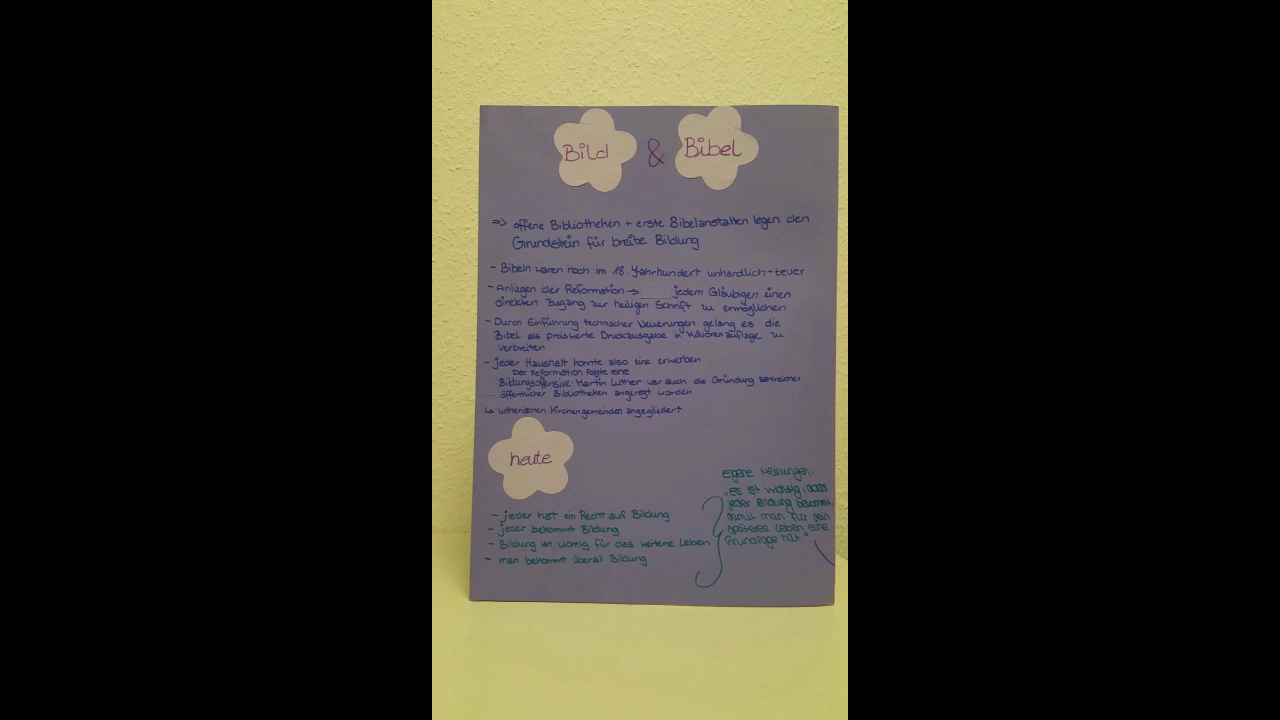 Bild & Bibel
=> offene Bibliotheken + erste Bibelanstalten legen den
Grundstein für breite Bildung
- Bibeln waren noch im 18. Jahrhundert unhandlich + teuer
- Anliegen der Reformation → jedem Gläubigen einen
direkten Zugang zur heiligen Schrift zu ermöglichen
- Durch Einführung technischer Neuerungen gelang es die
Bibel als preiswerte Druckausgabe in Millionenauflage zu
verbreiten
- jeder Haushalt konnte also eine erwerben
Der Reformation folgte eine
Bildungsoffensive Martin Luther war auch die Gründung zahlreicher
öffentlicher Bibliotheken angeregt worden
↳ lutherischen Kirchengemeinden angegliedert
heute
- jeder hat ein Recht auf Bildung
- jeder bekommt Bildung
- Bildung ist wichtig für das weitere Leben
- man bekommt überall Bildung
Eigene Meinungen:
„Es ist wichtig, dass
jeder Bildung bekommt,
damit man für sein
späteres Leben eine
Grundlage hat."